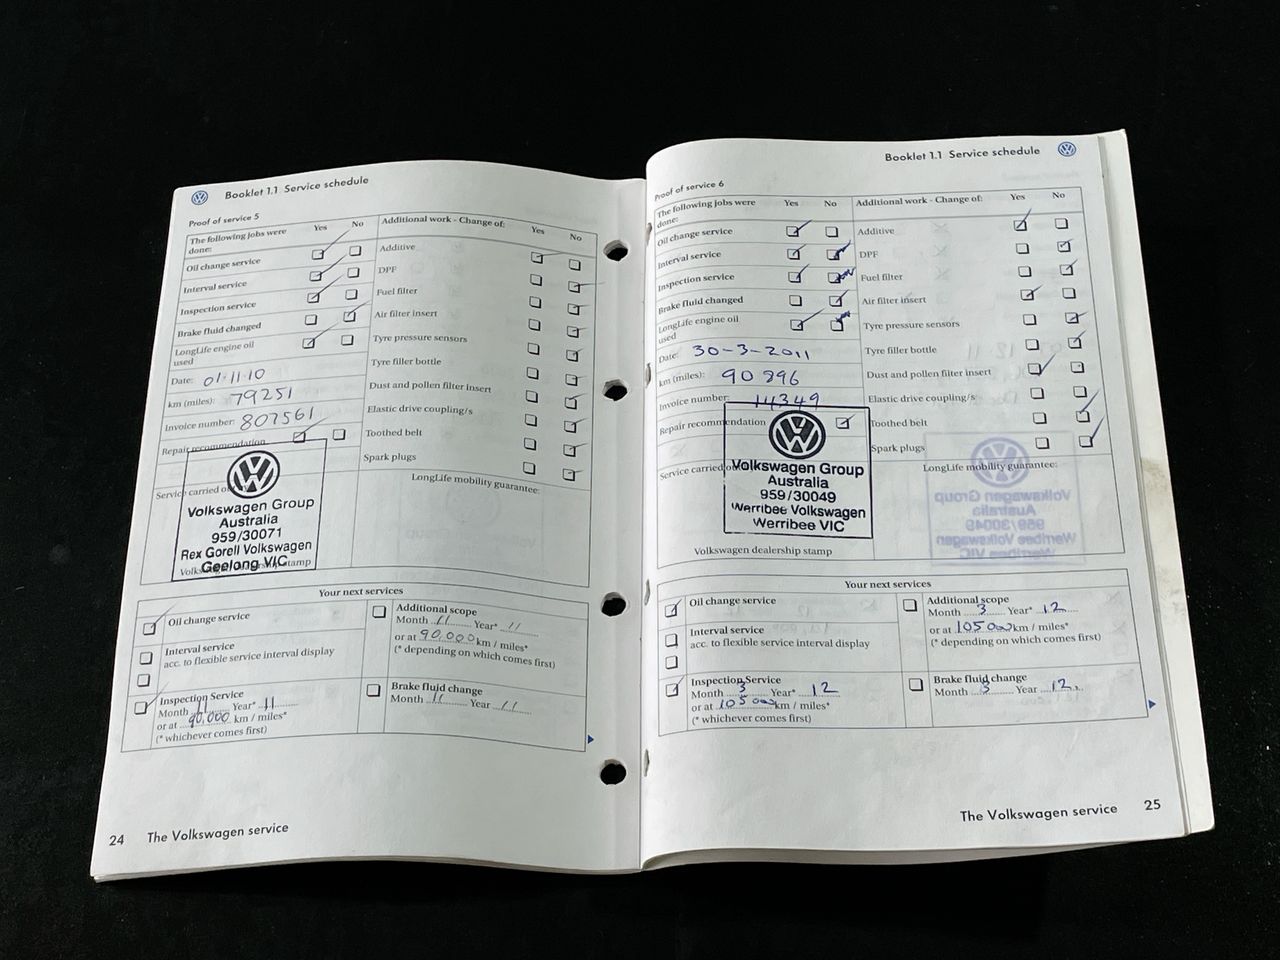 Booklet 1.1 Service schedule
Proof of service 5
The following jobs were done: Yes No
Oil change service
Interval service
Inspection service
Brake fluid changed
LongLife engine oil used
Date: 01.11.10
km (miles): 79251
Invoice number: 807561
Repair recommendation
Service carried o
Volkswagen Group
Australia
959/30071
Rex Gorell Volkswagen
Geelong VIC
Additional work - Change of: Yes No
Additive
DPF
Fuel filter
Air filter insert
Tyre pressure sensors
Tyre filler bottle
Dust and pollen filter insert
Elastic drive coupling/s
Toothed belt
Spark plugs
LongLife mobility guarantee:
Your next services
Oil change service
Interval service
acc. to flexible service interval display
Inspection Service
Month 11 Year* 11
or at 90,000 km / miles*
(* whichever comes first)
Additional scope
Month 11 Year* 11
or at 90,000 km / miles*
(* depending on which comes first)
Brake fluid change
Month 11 Year 11
24 The Volkswagen service
Booklet 1.1 Service schedule
Proof of service 6
The following jobs were done: Yes No
Oil change service
Interval service
Inspection service
Brake fluid changed
LongLife engine oil used
Date: 30-3-2011
km (miles): 90896
Invoice number: 14349
Repair recommendation
Service carried o
Volkswagen Group
Australia
959/30049
Werribee Volkswagen
Werribee VIC
Volkswagen dealership stamp
Additional work - Change of: Yes No
Additive
DPF
Fuel filter
Air filter insert
Tyre pressure sensors
Tyre filler bottle
Dust and pollen filter insert
Elastic drive coupling/s
Toothed belt
Spark plugs
LongLife mobility guarantee:
Your next services
Oil change service
Interval service
acc. to flexible service interval display
Inspection Service
Month 3 Year* 12
or at 105 000 km / miles*
(* whichever comes first)
Additional scope
Month 3 Year* 12
or at 105 000 km / miles*
(* depending on which comes first)
Brake fluid change
Month 3 Year 12.
The Volkswagen service 25